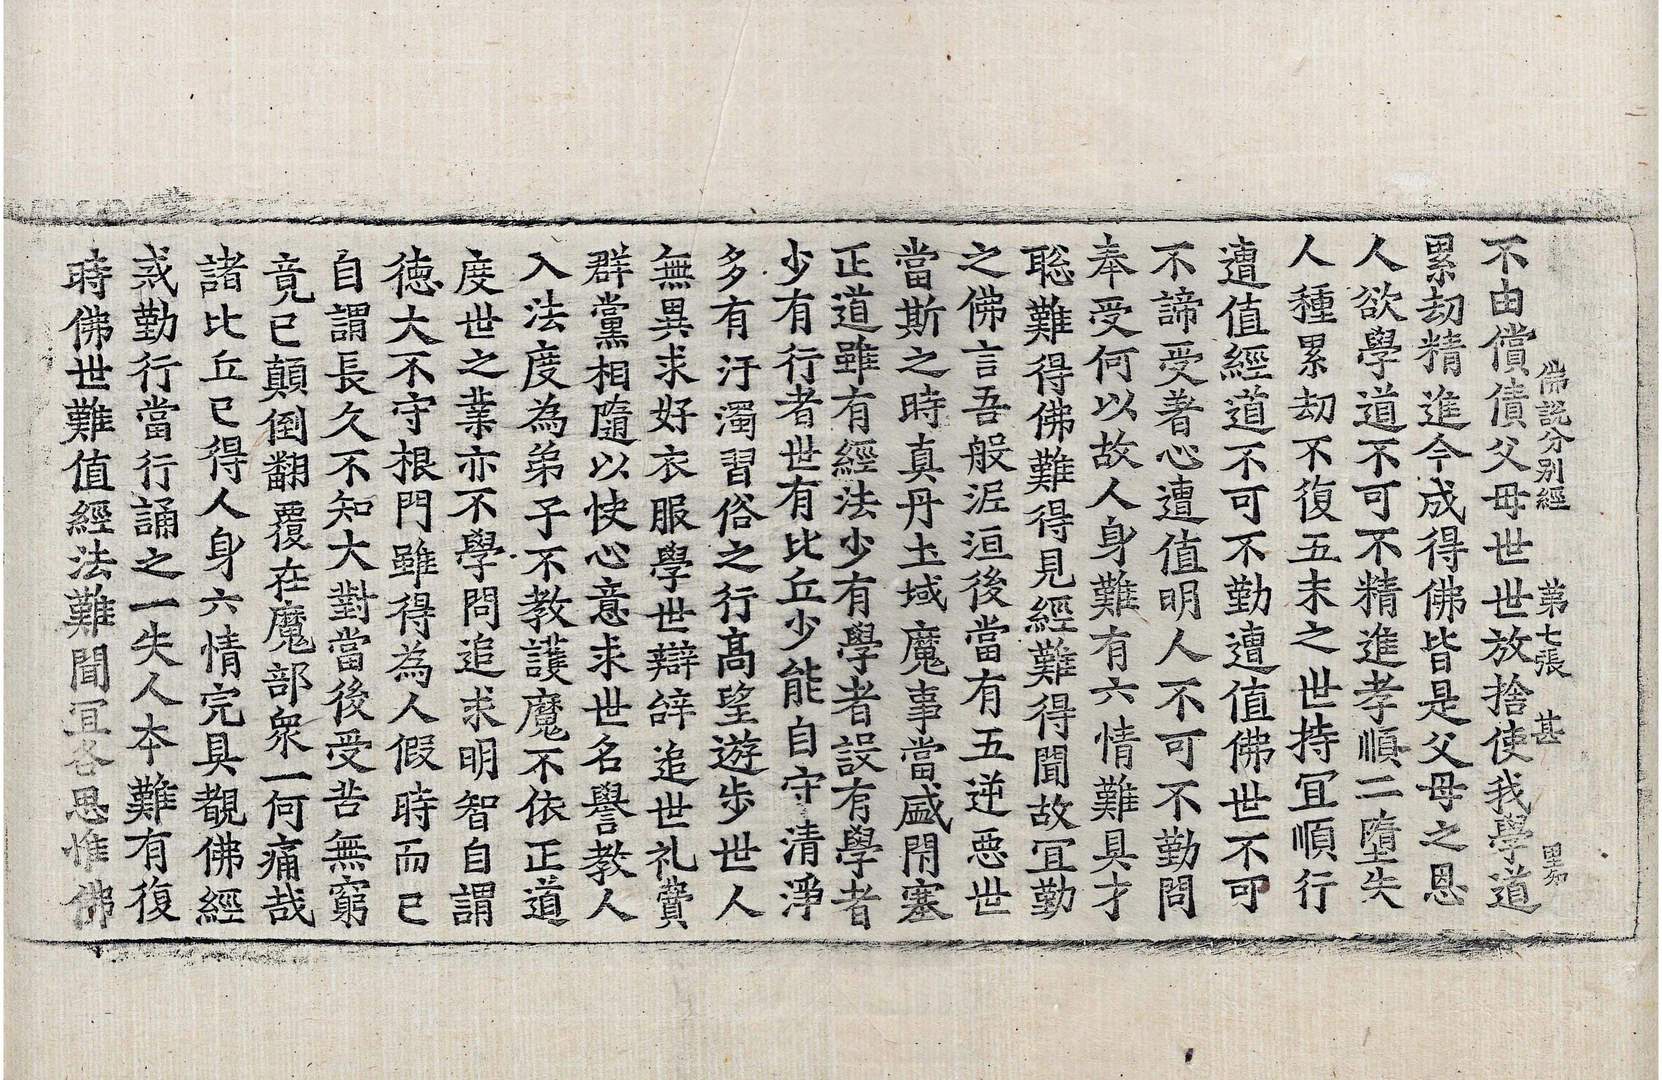 佛說分別經 第七張 甚
不由償債父母世世放捨使我學道
累劫精進今成得佛皆是父母之恩
人欲學道不可不精進孝順二墮失
人種累劫不復五末之世持冝順行
遭值經道不可不勤遭值佛世不可
不諦受著心遭值明人不可不勤問
奉受何以故人身難有六情難具才
聡難得佛難得見經難得聞故冝勤
之佛言吾般泥洹後當有五逆惡世
當斯之時真丹土域魔事當盛閇塞
正道雖有經法少有學者設有學者
少有行者世有比丘少能自守清淨
多有汙濁習俗之行髙望遊步世人
無異求好衣服學世辯辝追世礼費
群黨相隨以快心意求世名譽教人
入法度為弟子不教護魔不依正道
度世之業亦不學問追求明智自謂
德大不守根門雖得為人假時而已
自謂長久不知大對當後受苦無窮
竟已顛倒翻覆在魔部衆一何痛哉
諸比丘已得人身六情完具覩佛經
戒勤行當行誦之一失人本難有復
時佛世難值經法難聞冝各思惟佛